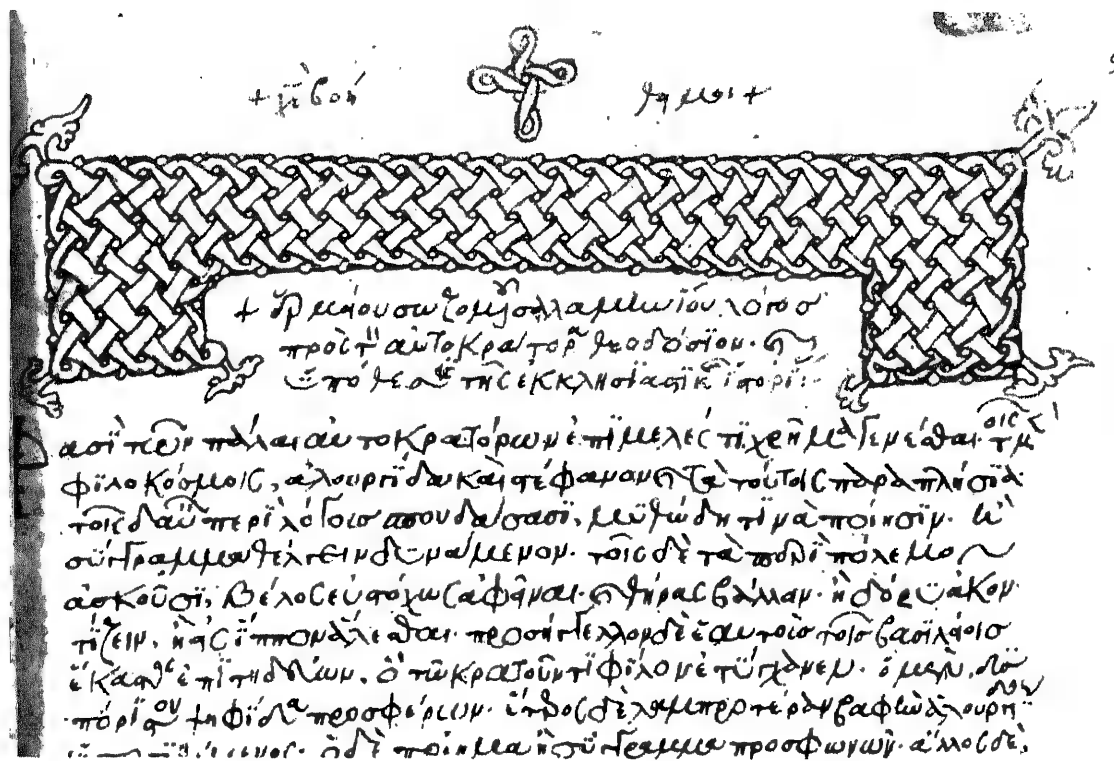 + βοή θη μοι +
+ Ἑρμείου σωζομενοῦ σαλαμινίου λόγος
πρὸς τὸν αὐτοκράτορα θεοδόσϊον· καὶ
ὑπόθεσις τῆς ἐκκλησϊαστϊκῆς ϊστορίας:
ασὶ τῶν πάλαι αὐτοκρατόρων ἐπϊμελές τϊ χρῆμα γενέσθαι· τοῖς μὲν
φϊλοκόσμοις, ἁλουργίδα καὶ στέφανον καὶ τὰ τούτοις παραπλήσϊα·
τοῖς δ' αὖ περὶ λόγοις σπουδάσασϊ, μϋθώδη τινὰ ποίησϊν· ἢ
σύγγραμμα θέλγειν δυνάμενον· τοῖς δὲ τὰ περὶ πόλεμον
ἀσκοῦσϊ, βέλος εὐστόχως ἀφεῖναι· καὶ θῆρας βάλλειν· ἢ δόρϋ ἀκον
τίζειν, ἢ εἰς ἵππον ἅλεσθαι· προσήγγελλον δὲ ἑαυτοὺς τοῖς βασιλείοις
ἕκαστος ἐπϊτηδεύων, ὃ τῶ κρατοῦντϊ φίλον ἐτύγχανεν· ὁ μὲν, δϋσ
πόρϊστον ψηφῖδα προσφέρων· ἕτερος δὲ λαμπροτέραν βαφὴν ἁλουργίδος
ὁ δὲ ποίημα ἢ σύγγραμμα προσφωνῶν· ἄλλος δὲ,